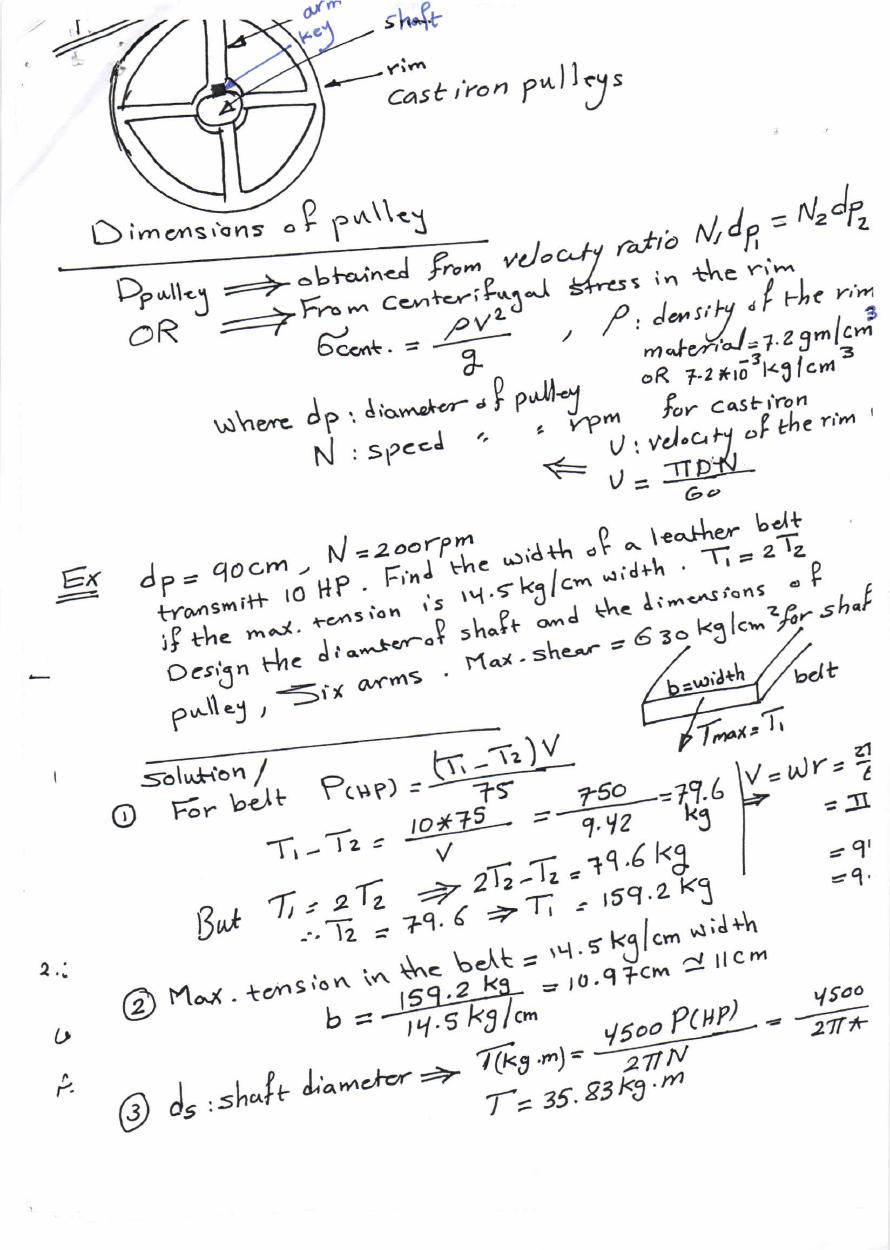 arm
key
shaft
rim
cast iron pulleys
Dimensions of pulley
Dpulley ⟹ obtained from velocity ratio N₁dp₁ = N₂dp₂
OR ⟹ From centerifugal stress in the rim
σcent. = ρv²/g , ρ: density of the rim
material = 7.2 gm/cm³
OR 7.2*10⁻³ kg/cm³
for cast iron
where dp : diameter of pulley
N : speed " " rpm
υ : velocity of the rim
⟸ υ = πDN/60
Ex dp = 90cm, N = 200rpm
transmitt 10 HP. Find the width of a leather belt
if the max. tension is 14.5 kg/cm width. T₁ = 2T₂
Design the diamter of shaft and the dimensions of
pulley, Six arms. Max. shear = 630 kg/cm² for shaf
b=width
belt
Tmax = T₁
Solution/
① For belt P(HP) = (T₁ - T₂)V/75
T₁ - T₂ = 10*75/V = 750/9.42 = 79.6 kg
⇒ V = Wr =
= π
= 9
= 9.
But T₁ = 2T₂ ⟹ 2T₂ - T₂ = 79.6 kg
∴ T₂ = 79.6 ⇒ T₁ = 159.2 kg
② Max. tension in the belt = 14.5 kg/cm width
b = 159.2 kg/14.5 kg/cm = 10.97cm ≃ 11cm
③ ds : shaft diameter ⟹ T(kg.m) = 4500 P(HP)/2πN = 4500/2π*
T = 35.83 kg.m